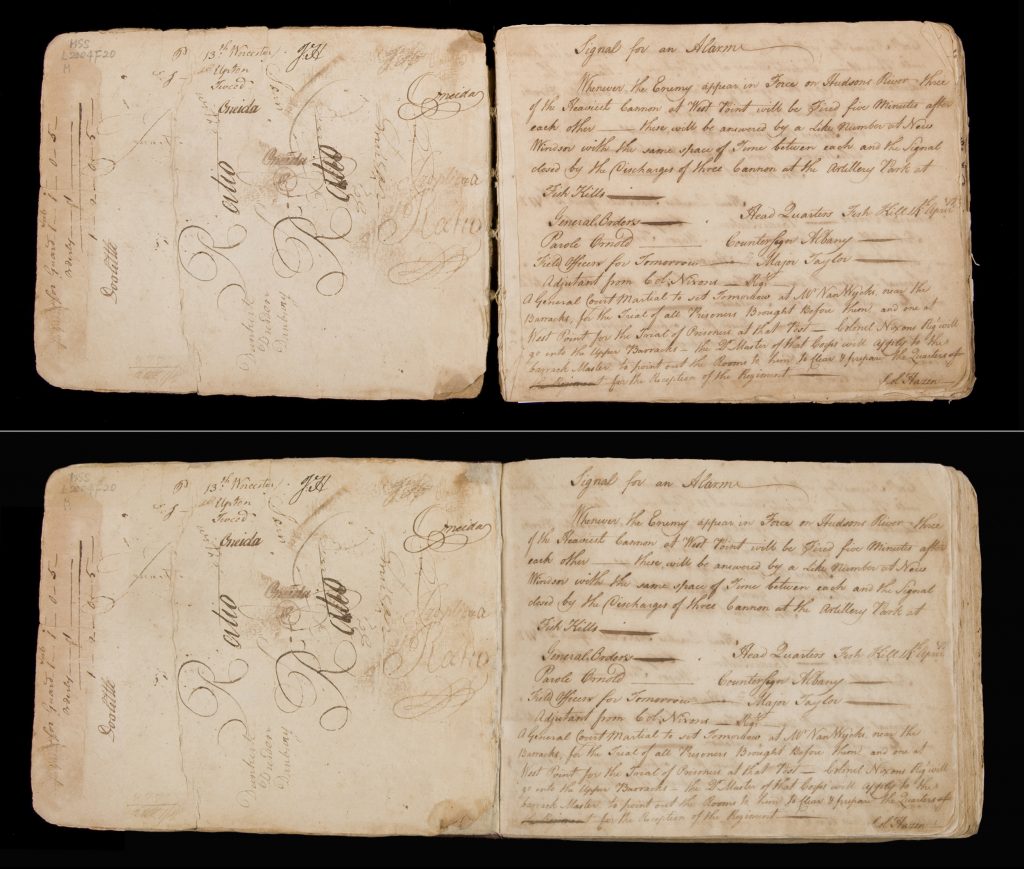 MSS
L2004F20
M
13th Worcester
Upton
Oneida
JH
Oneida
Ratio
Ratio
Oneida
Doolittle
Signal for an Alarm
Whenever the Enemy appear in Force on Hudsons River three
of the Heaviest Cannon at West Point will be Fired five Minutes after
each other — these will be answered by a Like Number at New
Windsor with the same space of Time between each and the Signal
closed by the Discharges of three Cannon at the Artillery Park at
Fish Kills
General Orders Head Quarters Fish Kill 14th April
Parole Ornold Countersign Albany
Field Officers for Tomorrow — Major Taylor
Adjutant from Col. Nixons — Regt
A General Court Martial to set Tomorrow at Mr VanWycks near the
Barracks, for the Trial of all Prisoners Brought Before them and one at
West Point for the Trial of Prisoners at that Post — Colonel Nixons Regt will
go into the Upper Barracks — the Qr Master of that Corps will apply to the
barrack Master to point out the Rooms to him to clear & prepare the Quarters of
for the Reception of the Regiment
Col. Hazen
MSS
L2004F20
13th Worcester
Upton
Oneida
JH
Oneida
Ratio
Ratio
Oneida
Doolittle
Signal for an Alarm
Whenever the Enemy appear in Force on Hudsons River three
of the Heaviest Cannon at West Point will be Fired five Minutes after
each other — these will be answered by a Like Number at New
Windsor with the same space of Time between each and the Signal
closed by the Discharges of three Cannon at the Artillery Park at
Fish Kills
General Orders Head Quarters Fish Kill 14th April
Parole Ornold Countersign Albany
Field Officers for Tomorrow — Major Taylor
Adjutant from Col. Nixons — Regt
A General Court Martial to set Tomorrow at Mr VanWycks near the
Barracks, for the Trial of all Prisoners Brought Before them and one at
West Point for the Trial of Prisoners at that Post — Colonel Nixons Regt will
go into the Upper Barracks — the Qr Master of that Corps will apply to the
barrack Master to point out the Rooms to him to clear & prepare the Quarters of
for the Reception of the Regiment
Col. Hazen